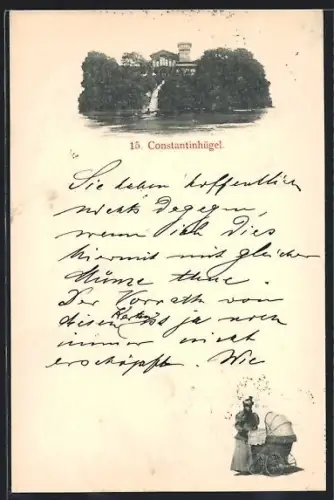 15. Constantinhügel.
Sie haben hoffentlich
nichts dagegen,
wenn ich dies
hiermit mit gleicher
Münze thue.
Der Vorrath von
diesen Karten ist ja noch
immer nicht
erschöpft. Wie